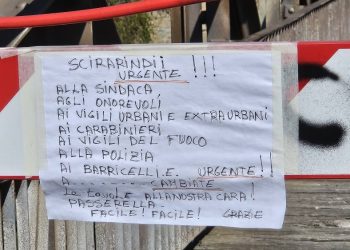 SCIRARINDI !!!
URGENTE
ALLA SINDACA,
AGLI ONOREVOLI,
AI VIGILI URBANI E EXTRAURBANI
AI CARABINIERI
AI VIGILI DEL FUOCO
ALLA POLIZIA
AI BARRICELLI.E. URGENTE!!
A......... CAMBIATE
le tavole ALLA NOSTRA CARA!
PASSERELLA.
FACILE! FACILE! GRAZIE